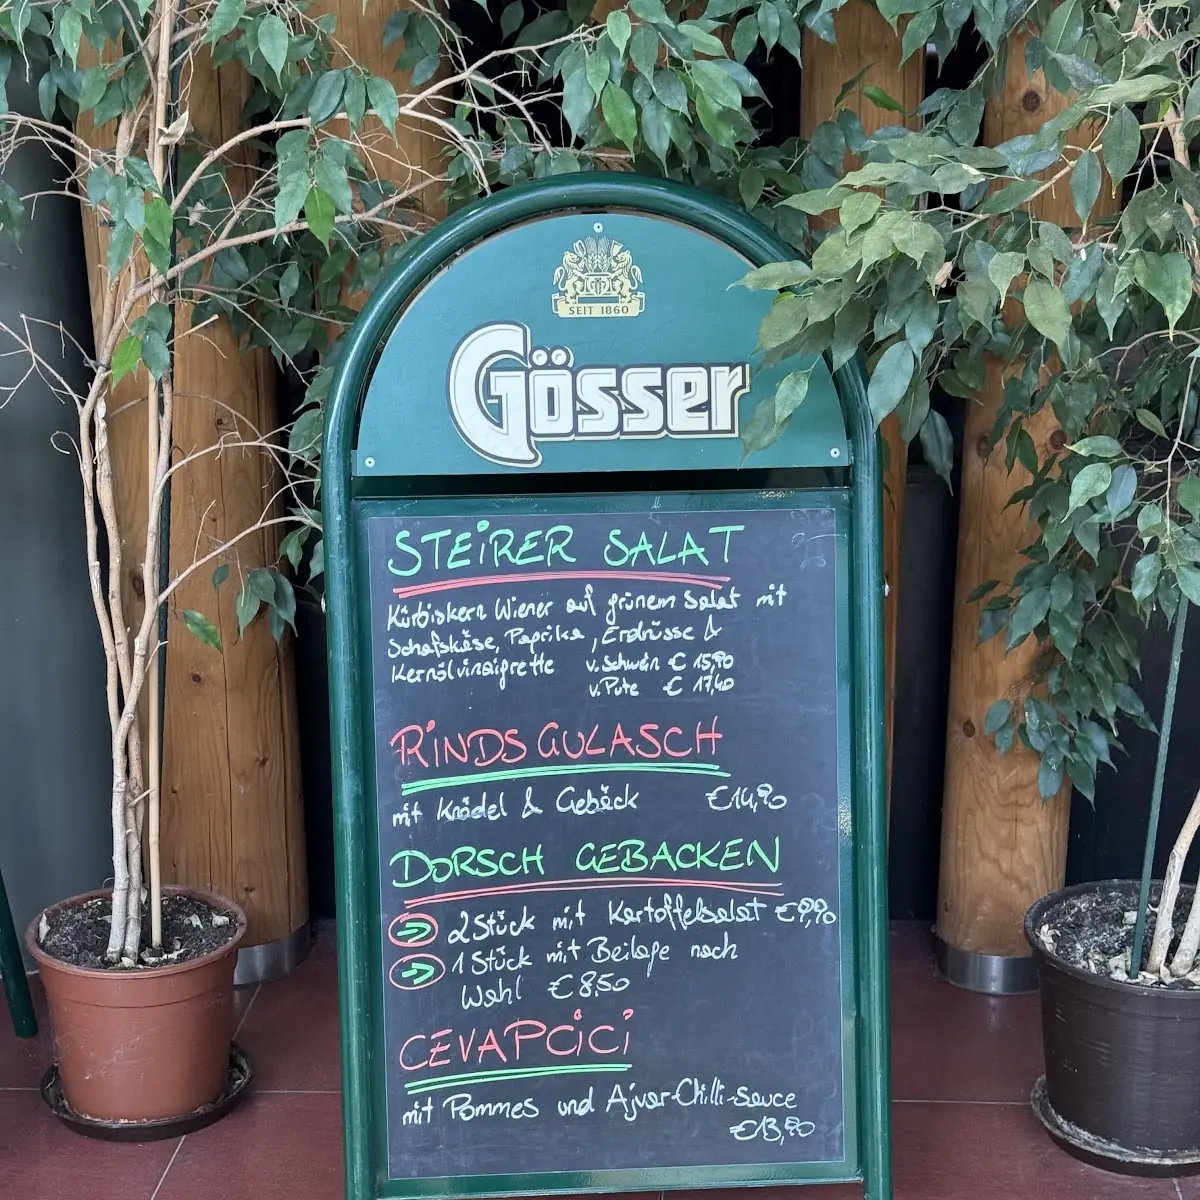 SEIT 1860
Gösser
STEiRER SALAT
Kürbiskern Wiener auf grünem Salat mit
Schafskäse, Paprika, Erdnüsse &
Kernölvinaigrette v. Schwein € 15,90
v. Pute € 17,40
RiNDSGULASCH
mit Knödel & Gebäck €14,90
DORSCH GEBACKEN
2 Stück mit Kartoffelsalat €9,90
1 Stück mit Beilage nach
Wahl €8,50
CEVAPCiCi
mit Pommes und Ajvar-Chilli-Sauce
€13,90